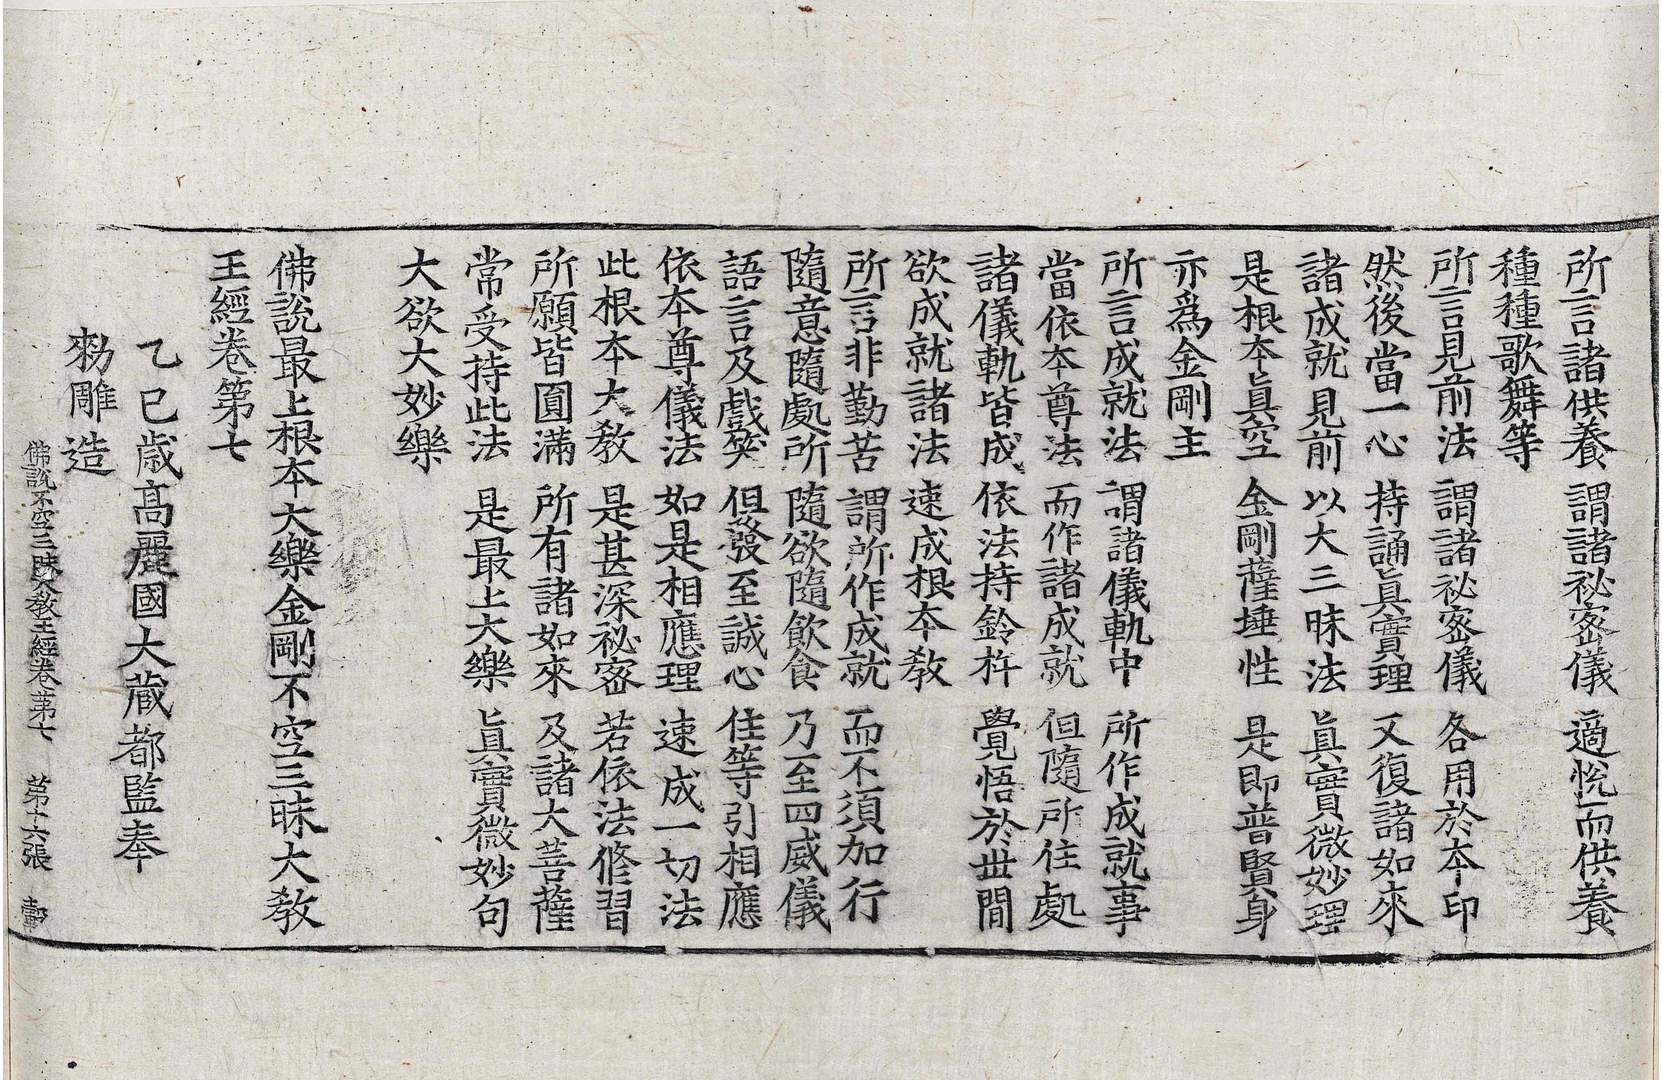 所言諸供養　謂諸祕密儀　適悅而供養
種種歌舞等
所言見前法　謂諸祕密儀　各用於本印
然後當一心　持誦眞實理　又復諸如來
諸成就見前　以大三昧法　眞實微妙理
是根本眞空　金剛薩埵性　是即普賢身
亦爲金剛主
所言成就法　謂諸儀軌中　所作成就事
當依本尊法　而作諸成就　但隨所住處
諸儀軌皆成　依法持鈴杵　覺悟於世間
欲成就諸法　速成根本教
所言非勤苦　謂所作成就　而不須加行
隨意隨處所　隨欲隨飲食　乃至四威儀
語言及戲笑　但發至誠心　住等引相應
依本尊儀法　如是相應理　速成一切法
此根本大教　是甚深祕密　若依法修習
所願皆圓滿　所有諸如來　及諸大菩薩
常受持此法　是最上大樂　眞實微妙句
大欲大妙樂
佛說最上根本大樂金剛不空三昧大教
王經卷第七
乙巳歲高麗國大藏都監奉
勑雕造
佛說不空三昧大教王經卷第七　第十六張　壹